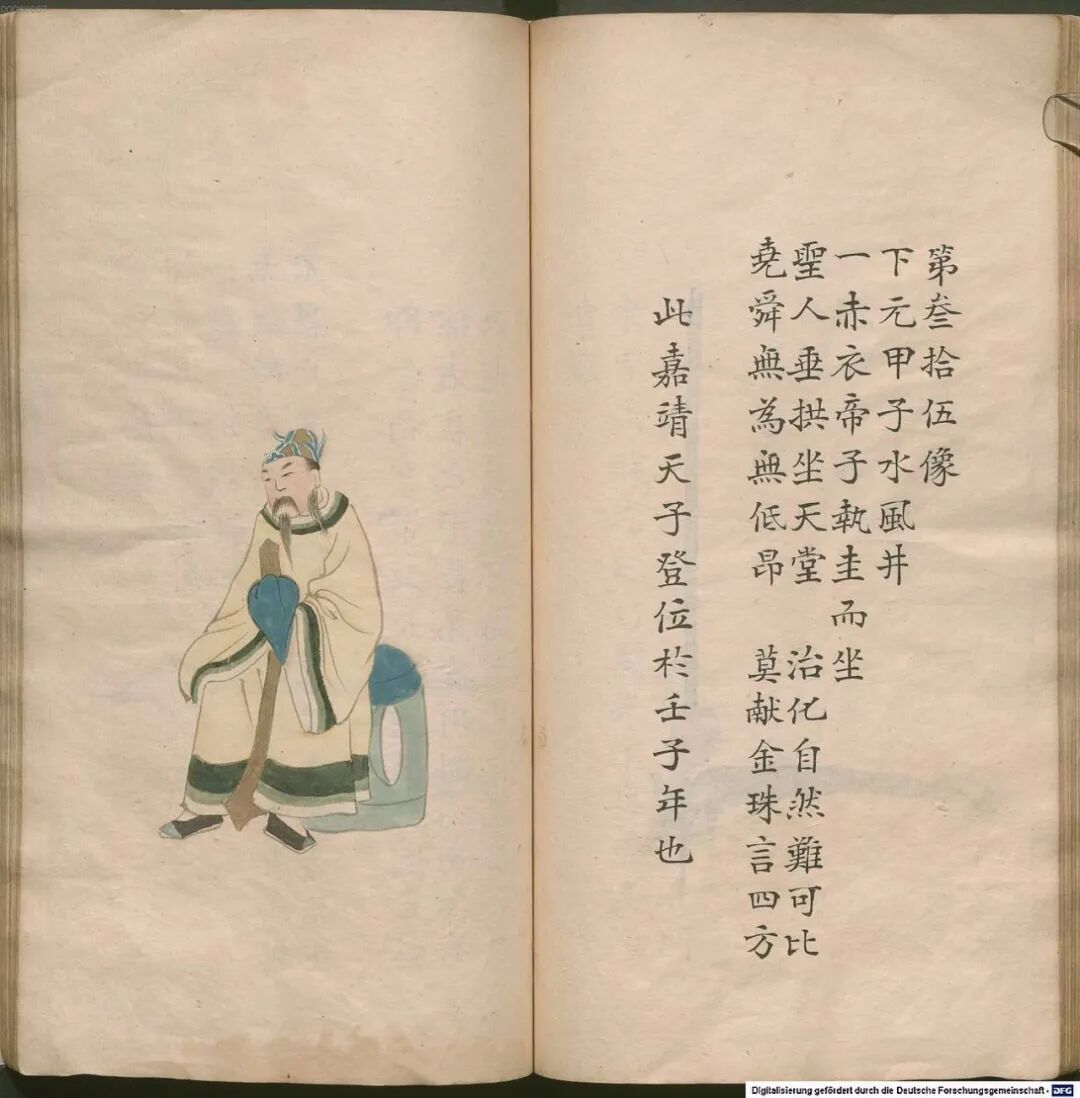 第叁拾伍像
下元甲子水風井
一赤衣帝子執圭而坐
聖人垂拱坐天堂 治化自然難可比
堯舜無為無低昂 莫献金珠言四方
此嘉靖天子登位於壬子年也
Digitalisierung gefördert durch die Deutsche Forschungsgemeinschaft - DFG